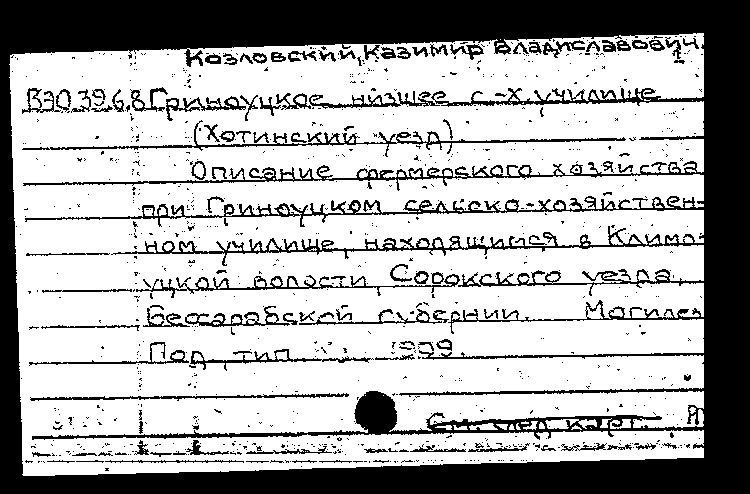 Козловский, Казимир Владиславович.
1
ВЭО 39.6.8 Гриноуцкое низшее с.-х. училище
(Хотинский уезд).
Описание фермерского хозяйства
при Гриноуцком сельско-хозяйствен-
ном училище, находящимся в Климо-
уцкой волости, Сорокского уезда,
Бессарабской губернии. Могилев
Под, тип. 1909.
См. след. карт.